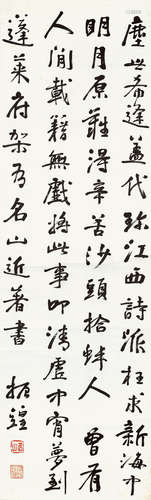 塵世希逢蓋代珎江西詩派枉求新海中
明月原難得辛苦沙頭拾蚌人 曾有
人間載籍無戲將此事叩清虛中宵夢到
蓬萊府架有名山近著書 振鍠